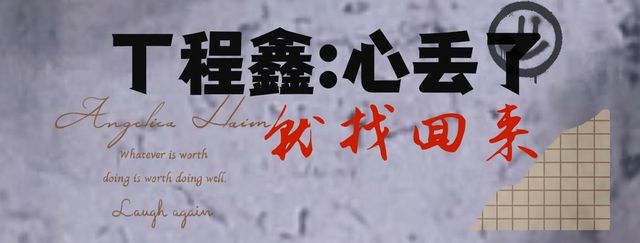 丁程鑫:心丢了
就找回来
Angelica Haim
Whatever is worth
doing is worth doing well.
Laugh again